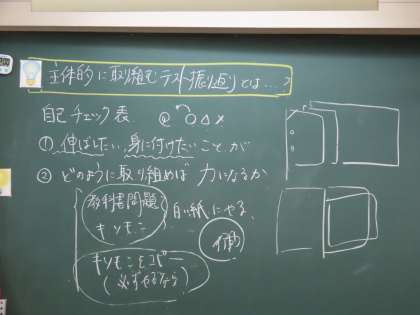 主体的に取り組むテスト振り返りとは…?
自己チェック表 ◎○△×
①伸ばしたい、身に付けたいことが
②どのように取り組めば力になるか
教科書問題
キソモン
白い紙にやる。
キソモンをコピー
(必ずやるなら)